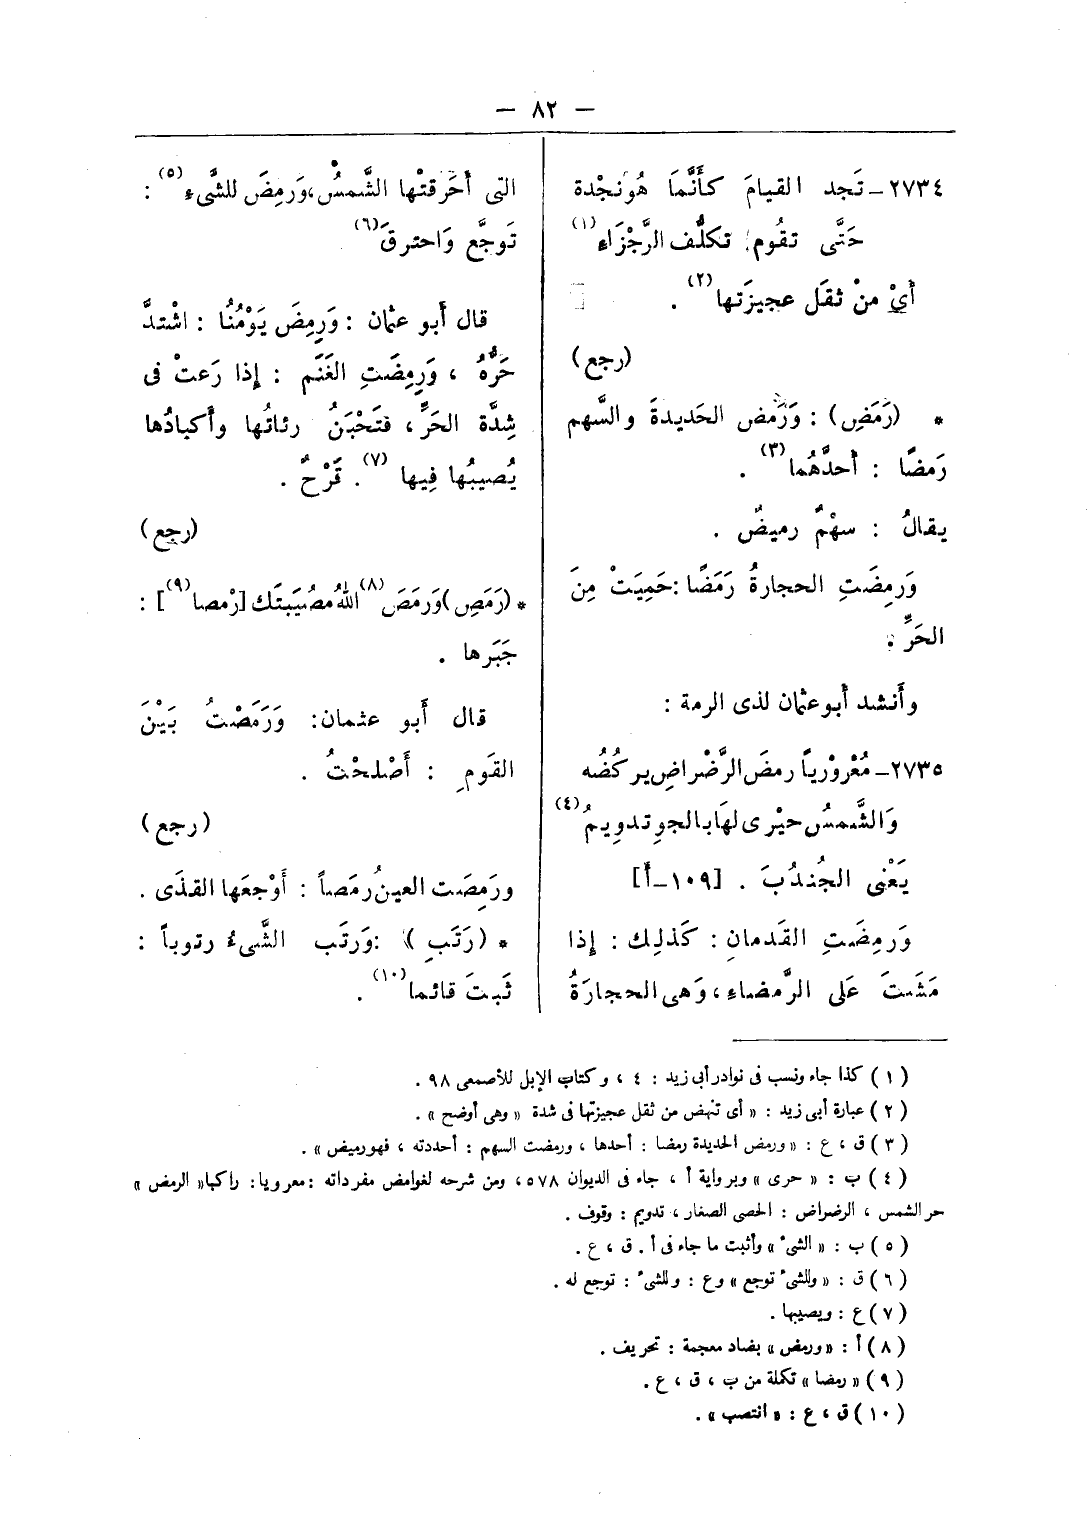 — ٨٢ —
٢٧٣٤ــ تَجد القيامَ كأَنَّمَا هُونجْدة
حَتَّى تقُوم تكلُّف الرَّجْزَاءِ (١)
أَيْ منْ ثقَل عجيزَتها (٢) .
(رجع)
* (رَمَضِ) : وَرَمض الحَديدةَ والسَّهم
رَمضًا : أَحدَّهُما (٣) .
يقالُ : سهْمٌ رميضٌ .
وَرمِضَتِ الحجارةُ رَمَضًا : حَمِيَتْ مِنَ
الحَرِّ .
وأَنشد أَبوعثمان لذى الرمة :
٢٧٣٥ــ مُعْرَوْرياً رمضَ الرَّضْراضِ يركُضُه
وَالشَّمسُ حيْرى لهَا بالجو تدويمُ (٤)
يَعْنى الجُندُبَ . [١٠٩ــأ]
وَرمِضَتِ القَدمانِ : كَذلِك : إذا
مَشَتَ عَلى الرَّمضاءِ ، وَهى الحجارَةُ
التى أَحْرقتْها الشَّمسُ ، وَرمِضَ للشَّىءِ (٥) :
تَوجَّع وَاحترقَ (٦)
قال أَبو عثمان : وَرمِضَ يَوْمُنُا : اشْتدَّ
حَرُّهُ ، وَرمِضَتِ الغَنَم : إذا رَعتْ فى
شِدَّة الحَرِّ ، فتَحْبَنُ رئاتُها وأَكبادُها
يُصيبُها فِيها (٧) . قَرْحٌ .
(رجع)
* (رَمَصِ) وَرمَصَ (٨) اللهُ مصُيَبتَك [رْمصا (٩)] :
جَبَرها .
قال أَبو عثمان : وَرَمَصْتُ بَيْنَ
القَومِ : أَصْلحْتُ .
(رجع)
ورَمِصَت العينُ رمَصاً : أَوْجعَها القذَى .
* (رَتَبِ) : وَرتَب الشَّىءُ رتوباً :
ثَبتَ قائما (١٠) .
(١) كذا جاء ونسب فى نوادر أبى زيد : ٤ ، وكتاب الإبل للأصمعى ٩٨ .
(٢) عبارة أبى زيد : « أى تنهض من ثقل عجيزتها فى شدة « وهى أوضح » .
(٣) ق ، ع : « ورمض الحديدة رمضا : أحدها ، ورمضت السهم : أحددته ، فهورميض » .
(٤) ب : « حرى » وبرواية أ ، جاء فى الديوان ٥٧٨ ، ومن شرحه لغوامض مفرداته : معرويا : راكبا « الرمض »
حر الشمس ، الرضراض : الحصى الصغار ، تدويم : وقوف .
(٥) ب : « الشىء » وأثبت ما جاء فى أ . ق ، ع .
(٦) ق : « وللشىء توجع » وع : وللشىء : توجع له .
(٧) ع : ويصيبها .
(٨) أ : « ورمض » بضاد معجمة : تحريف .
(٩) « رمضا » تكملة من ب ، ق ، ع .
(١٠) ق ، ع : « انتصب » .